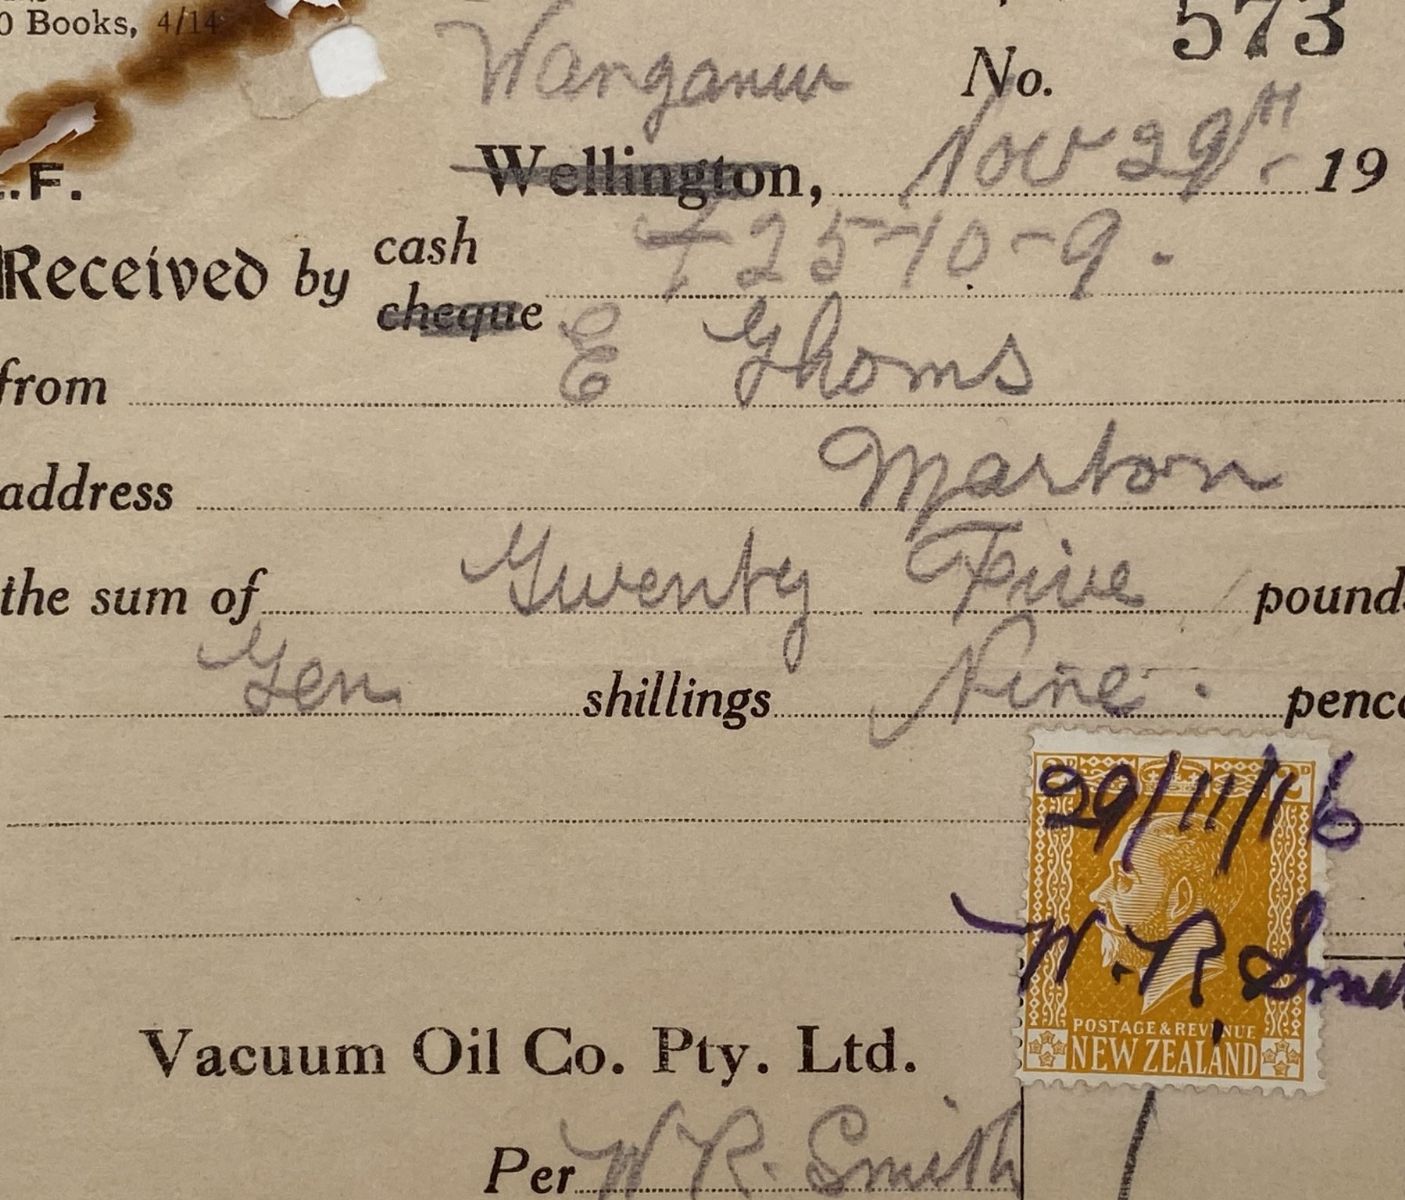 0 Books, 4/14
573
Wanganui No.
Wellington, Nov 29th. 19
.F.
Received by cash £25-10-9.
cheque
from E Thoms
address Marton
the sum of Twenty Five pounds
Ten shillings Nine. pence
2D 2D
29/11/16
W. R. Smit
POSTAGE & REVENUE
NEW ZEALAND
Vacuum Oil Co. Pty. Ltd.
Per W R. Smith